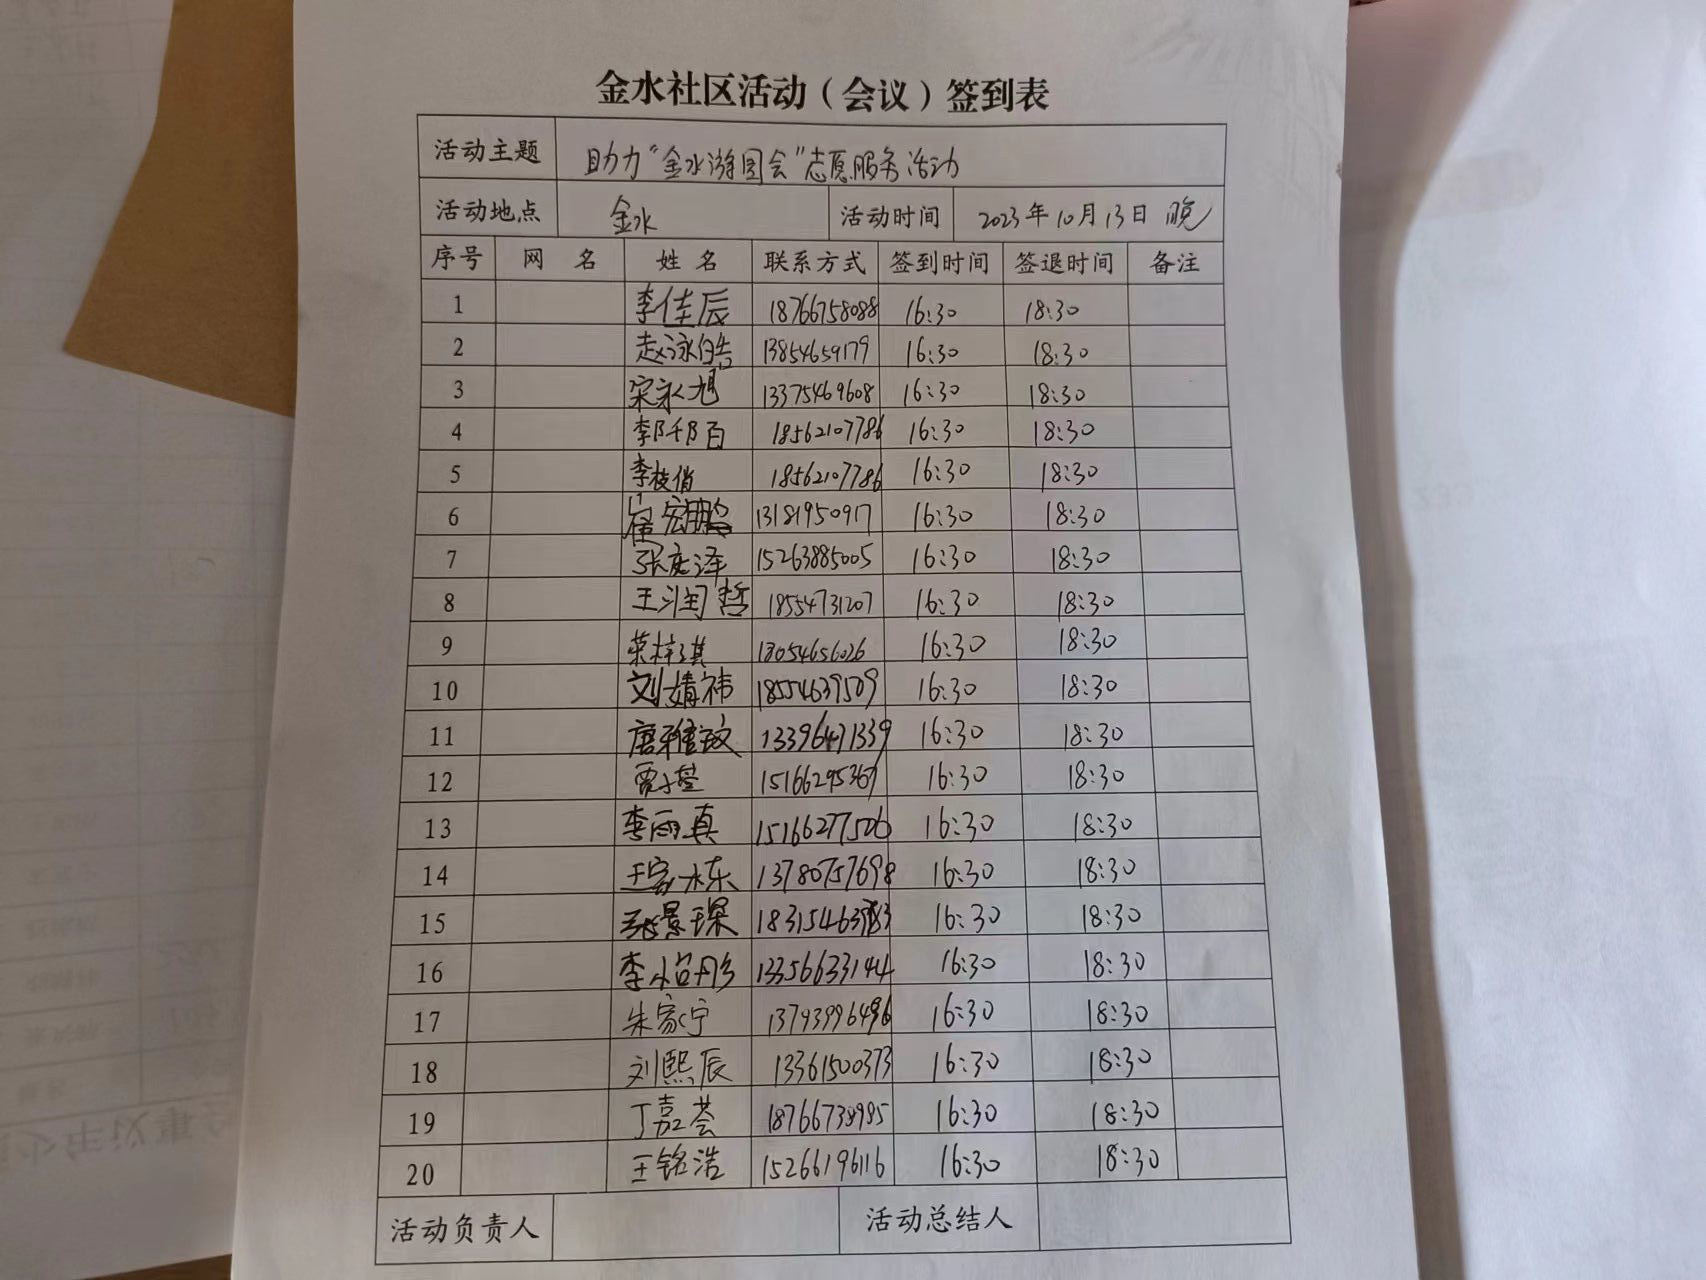 金水社区活动（会议）签到表
活动主题 助力“金水游园会”志愿服务活动
活动地点 金水 活动时间 2023年10月13日 晚
序号 网 名 姓 名 联系方式 签到时间 签退时间 备注
1 李佳辰 18766758088 16:30 18:30
2 赵泳皓 13854659179 16:30 18:30
3 宋永旭 13375469608 16:30 18:30
4 18562107786 16:30 18:30
5 18562107786 16:30 18:30
6 崔宏鹏 13181950917 16:30 18:30
7 张庭泽 15263885005 16:30 18:30
8 王润哲 18554731207 16:30 18:30
9 荣梓淇 16:30 18:30
10 刘婧祎 18554639509 16:30 18:30
11 唐雅致 13396471339 16:30 18:30
12 贾子莹 15166295367 16:30 18:30
13 李雨真 15166277506 16:30 18:30
14 王家栋 13780757698 16:30 18:30
15 张景琛 16:30 18:30
16 李怡彤 13356633144 16:30 18:30
17 朱家宁 13793996496 16:30 18:30
18 刘熙辰 13361500373 16:30 18:30
19 丁嘉荟 16:30 18:30
20 王铭浩 15266196116 16:30 18:30
活动负责人 活动总结人